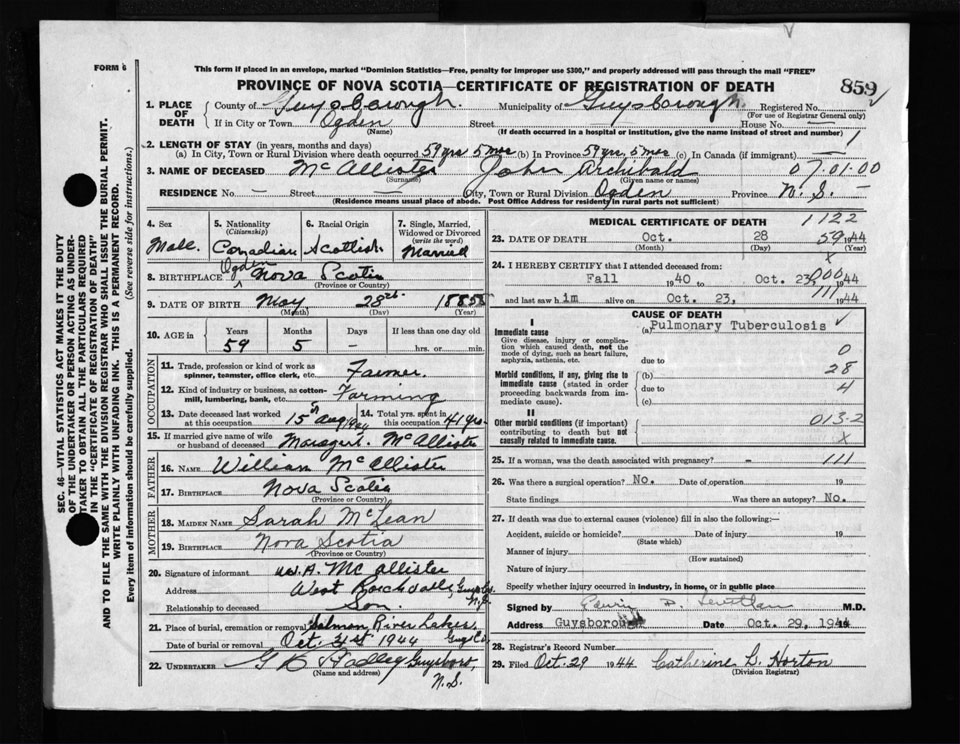 FORM 6
This form if placed in an envelope, marked "Dominion Statistics—Free, penalty for improper use $300," and properly addressed will pass through the mail "FREE"
PROVINCE OF NOVA SCOTIA—CERTIFICATE OF REGISTRATION OF DEATH
859
1. PLACE OF DEATH
County of Guysborough. Municipality of Guysborough. Registered No.
(For use of Registrar General only)
If in City or Town Ogden Street — House No. —
(Name) (If death occurred in a hospital or institution, give the name instead of street and number) 1
2. LENGTH OF STAY (in years, months and days)
(a) In City, Town or Rural Division where death occurred 59 yrs 5 mos (b) In Province 59 yrs, 5 mos (c) In Canada (if immigrant) —
3. NAME OF DECEASED McAllister John Archibald 07.01.00
(Surname) (Given name or names)
RESIDENCE No. — Street — City, Town or Rural Division Ogden Province N.S.
(Residence means usual place of abode. Post Office Address for residents in rural parts not sufficient)
4. Sex
Male.
5. Nationality
(Citizenship)
Canadian
6. Racial Origin
Scottish
7. Single, Married, Widowed or Divorced
(write the word)
Married
8. BIRTHPLACE Ogden Nova Scotia
(Province or Country)
9. DATE OF BIRTH May 28th 1885
(Month) (Day) (Year)
10. AGE in
Years Months Days If less than one day old
59 5 — hrs. or min.
OCCUPATION
11. Trade, profession or kind of work as spinner, teamster, office clerk, etc. Farmer.
12. Kind of industry or business, as cotton-mill, lumbering, bank, etc. Farming
13. Date deceased last worked at this occupation 15th Aug 1944 14. Total yrs. spent in this occupation 41 yrs.
15. If married give name of wife or husband of deceased Margaret. McAllister
FATHER
16. NAME William McAllister
17. BIRTHPLACE Nova Scotia
(Province or Country)
MOTHER
18. MAIDEN NAME Sarah McLean
19. BIRTHPLACE Nova Scotia
(Province or Country)
20. Signature of informant W.A. McAllister
Address West Roachvale, Guys. Co. N.S.
Relationship to deceased Son.
21. Place of burial, cremation or removal Salmon River Lakes, Guys Co.
Date of burial or removal Oct. 31st 1944
22. UNDERTAKER Guysboro, N.S.
(Name and address)
MEDICAL CERTIFICATE OF DEATH 1122
23. DATE OF DEATH Oct. 28 59 1944
(Month) (Day) (Year)
x
24. I HEREBY CERTIFY that I attended deceased from:
Fall 1940 to Oct. 23, 000 1944
and last saw him alive on Oct. 23, 111 1944
CAUSE OF DEATH
I
Immediate cause (a) Pulmonary Tuberculosis ✓
Give disease, injury or complication which caused death, not the mode of dying, such as heart failure, asphyxia, asthenia, etc.
due to 0
28
Morbid conditions, if any, giving rise to immediate cause (stated in order proceeding backwards from immediate cause).
(b)
due to 4
(c)
II
Other morbid conditions (if important) contributing to death but not causally related to immediate cause.
013-2
x
25. If a woman, was the death associated with pregnancy? - 111
26. Was there a surgical operation? No. Date of operation 19
State findings Was there an autopsy? No.
27. If death was due to external causes (violence) fill in also the following:—
Accident, suicide or homicide? Date of injury 19
(State which)
Manner of injury
(How sustained)
Nature of injury
Specify whether injury occurred in industry, in home, or in public place
Signed by M.D.
Address Guysborough Date Oct. 29, 1944
28. Registrar's Record Number
29. Filed Oct. 29 1944 Catherine L. Horton
(Division Registrar)
SEC. 46—VITAL STATISTICS ACT MAKES IT THE DUTY
OF THE UNDERTAKER OR PERSON ACTING AS UNDER-
TAKER TO OBTAIN ALL THE PARTICULARS REQUIRED
IN THE "CERTIFICATE OF REGISTRATION OF DEATH"
AND TO FILE THE SAME WITH THE DIVISION REGISTRAR WHO SHALL ISSUE THE BURIAL PERMIT.
WRITE PLAINLY WITH UNFADING INK. THIS IS A PERMANENT RECORD.
Every item of information should be carefully supplied. (See reverse side for instructions.)